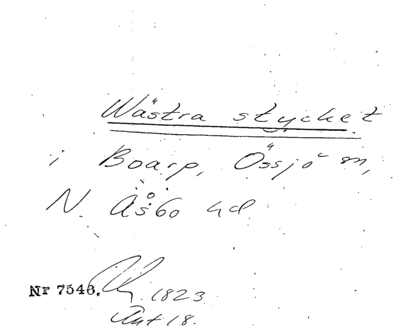 Wästra stycket
i Boarp, Össjö sn,
N. Åsbo hd
Nr 7546. 1823
Ant 18.